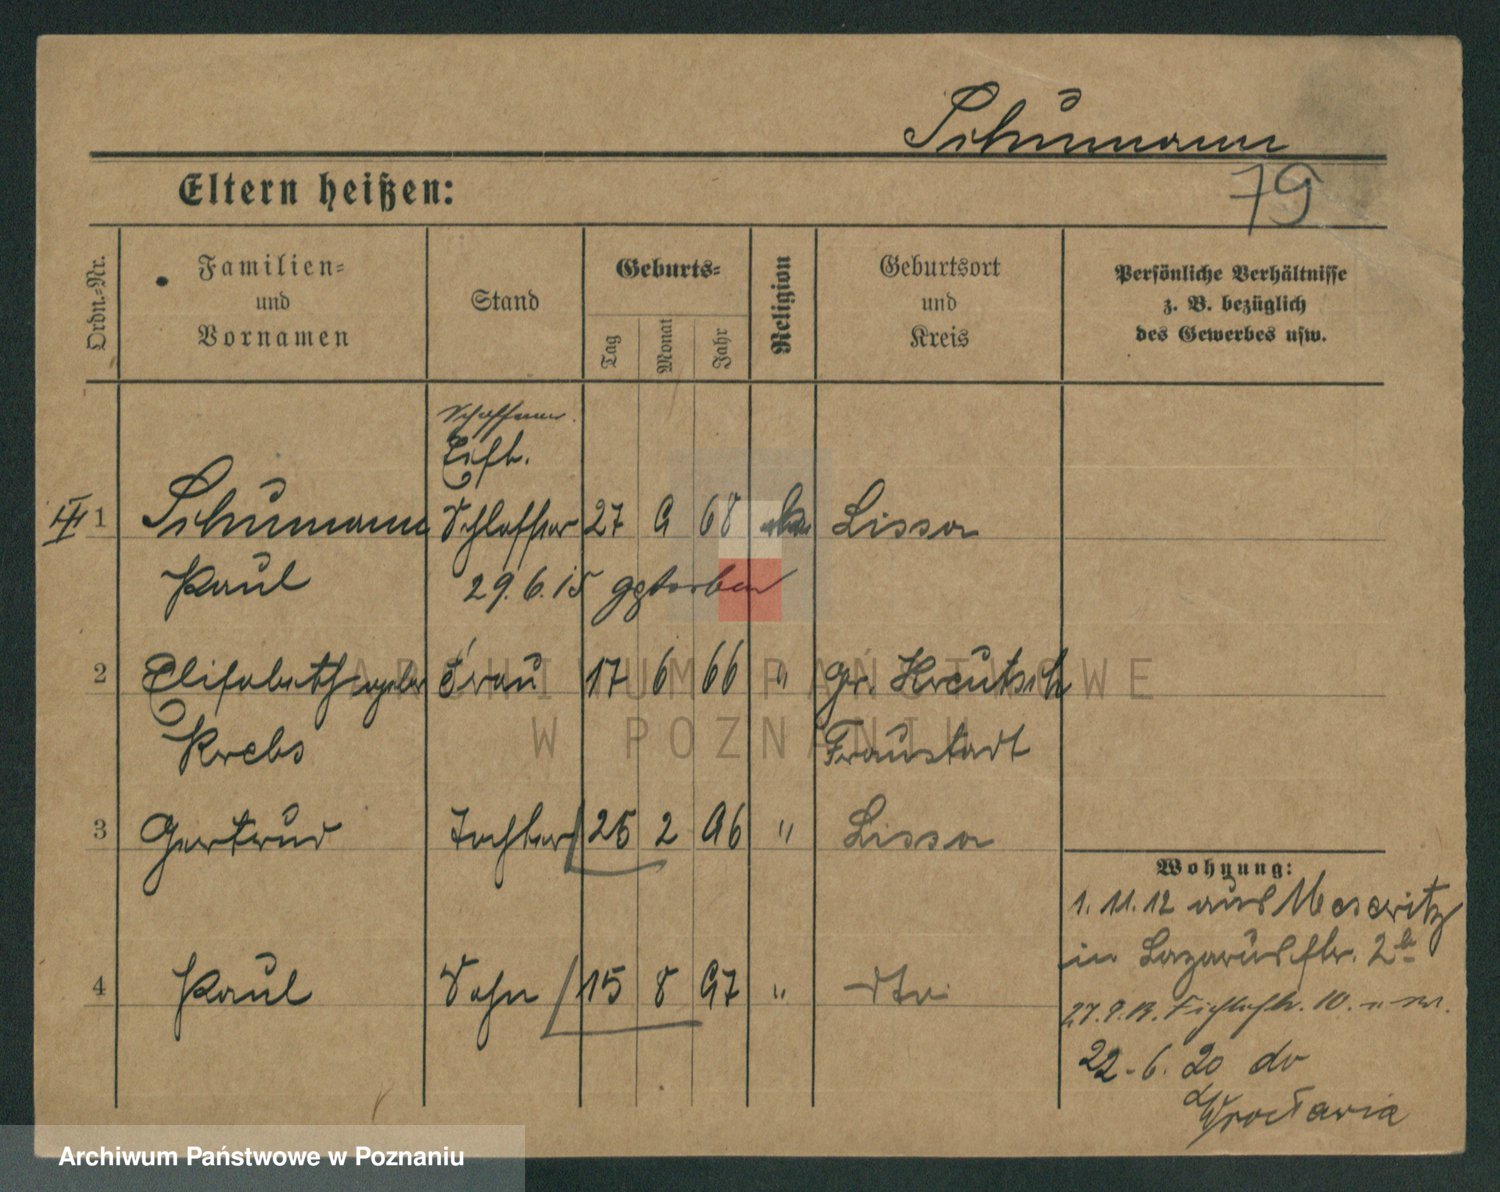 Schumann
79
Eltern heißen:
Ordn.-Nr.
Familien-
und
Vornamen
Stand
Geburts-
Tag
Monat
Jahr
Religion
Geburtsort
und
Kreis
Persönliche Verhältnisse
z. B. bezüglich
des Gewerbes usw.
Schaffner
Eisb.
III 1 Schumann Schlosser 27 9 68 Lissa
Paul 29.6.15 gestorben
2 Elisabeth geb Frau 17 6 66 " Gr. Kreutsch
Krebs Fraustadt
3 Gertrud Tochter 25 2 96 " Lissa
4 Paul Sohn 15 8 97 " dto.
Wohnung:
1. 11. 12 aus Meseritz
in Lazarusstr. 2
27.9.19. Fichtestr. 10.
22.6.20 do
Wrocławia
ARCHIWUM PAŃSTWOWE
W POZNANIU
Archiwum Państwowe w Poznaniu